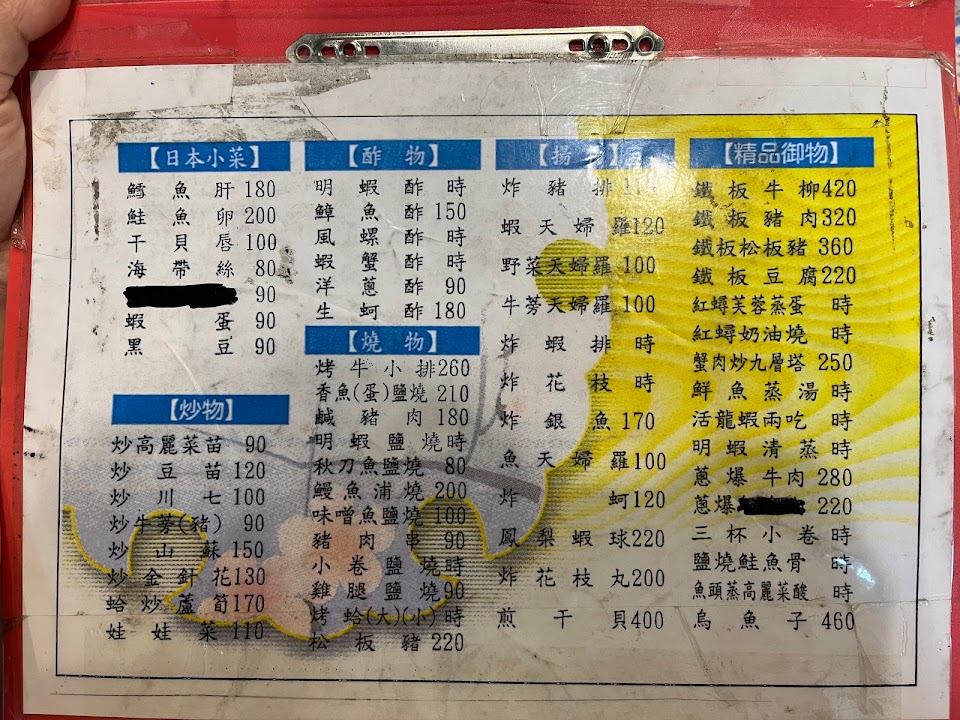 【日本小菜】
鱈魚肝 180
鮭魚卵 200
干貝唇 100
海帶絲 80
90
蝦蛋 90
黑豆 90
【炒物】
炒高麗菜苗 90
炒豆苗 120
炒川七 100
炒牛蒡(豬) 90
炒山蘇 150
炒金針花 130
蛤炒蘆筍 170
娃娃菜 110
【酢物】
明蝦酢 時
鱆魚酢 150
風螺酢 時
蝦蟹酢 時
洋蔥酢 90
生蚵酢 180
【燒物】
烤牛小排 260
香魚(蛋)鹽燒 210
鹹豬肉 180
明蝦鹽燒 時
秋刀魚鹽燒 80
鰻魚浦燒 200
味噌魚鹽燒 100
豬肉串 90
小卷鹽燒 時
雞腿鹽燒 90
烤蛤(大)(小) 時
松板豬 220
【揚
炸豬排
蝦天婦羅 120
野菜天婦羅 100
牛蒡天婦羅 100
炸蝦排 時
炸花枝 時
炸銀魚 170
魚天婦羅 100
炸蚵 120
鳳梨蝦球 220
炸花枝丸 200
煎干貝 400
【精品御物】
鐵板牛柳 420
鐵板豬肉 320
鐵板松板豬 360
鐵板豆腐 220
紅蟳芙蓉蒸蛋 時
紅蟳奶油燒 時
蟹肉炒九層塔 250
鮮魚蒸湯 時
活龍蝦兩吃 時
明蝦清蒸 時
蔥爆牛肉 280
蔥爆 220
三杯小卷 時
鹽燒鮭魚骨 時
魚頭蒸高麗菜酸 時
烏魚子 460